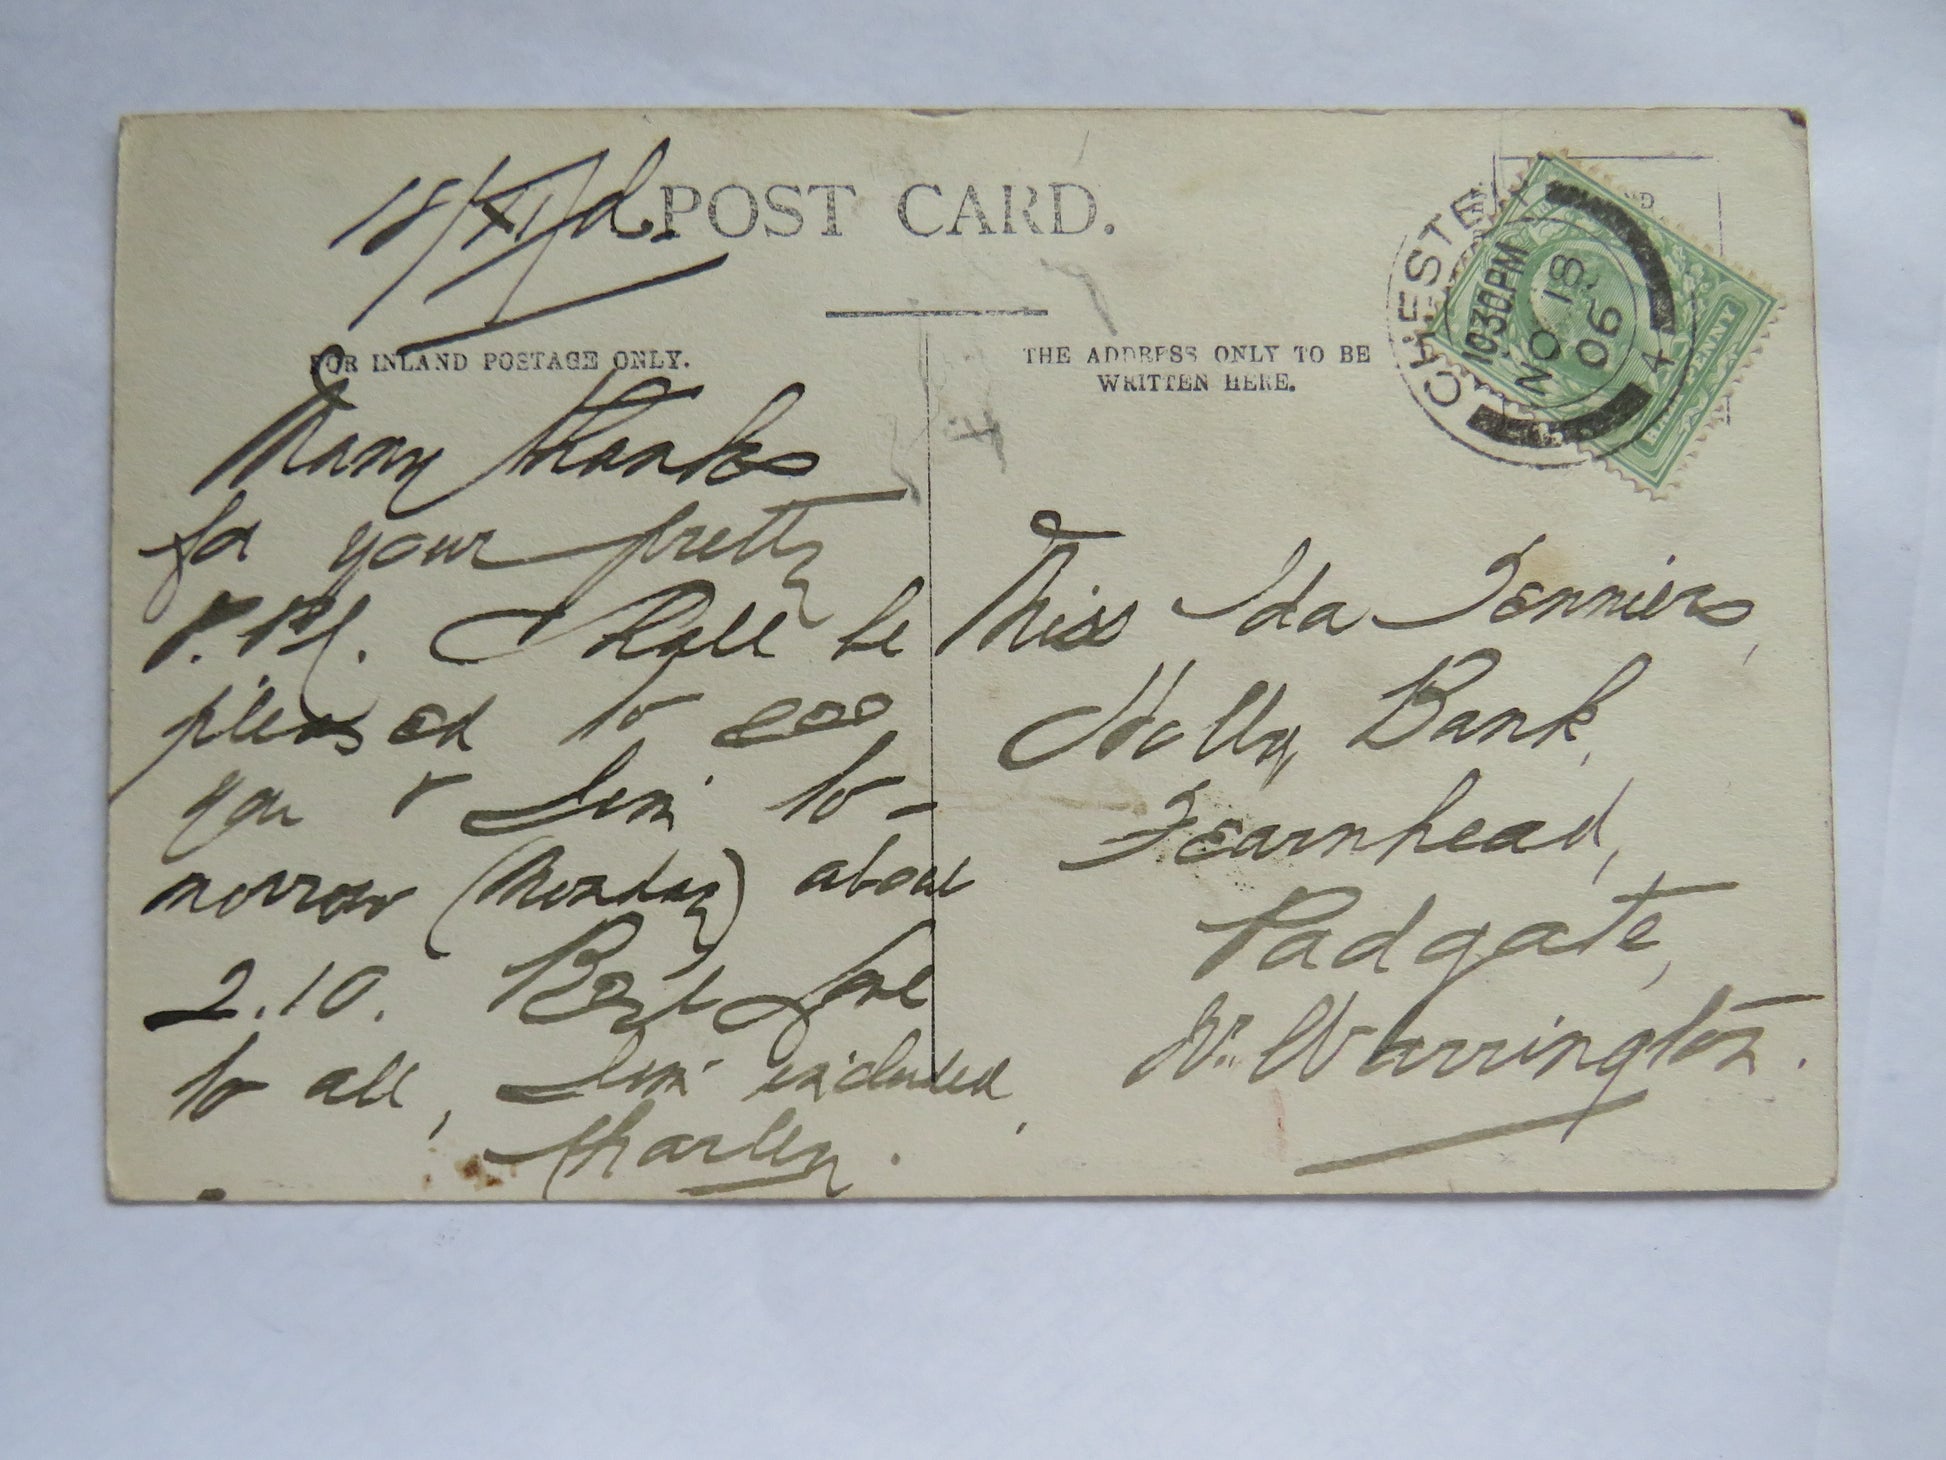 18/XI/
POST CARD.
FOR INLAND POSTAGE ONLY.
Many thanks
for your pretty
P.P.C. I shall be
pleased to see
you & Jim to-
morrow (Monday) about
2.10. Best love
to all, Jim included,
Charley.
THE ADDRESS ONLY TO BE
WRITTEN HERE.
CHESTER
10 30 PM
NO 18
06
4
HALFPENNY
Miss Ida
Holly Bank,
Fearnhead,
Padgate,
Nr. Warrington.